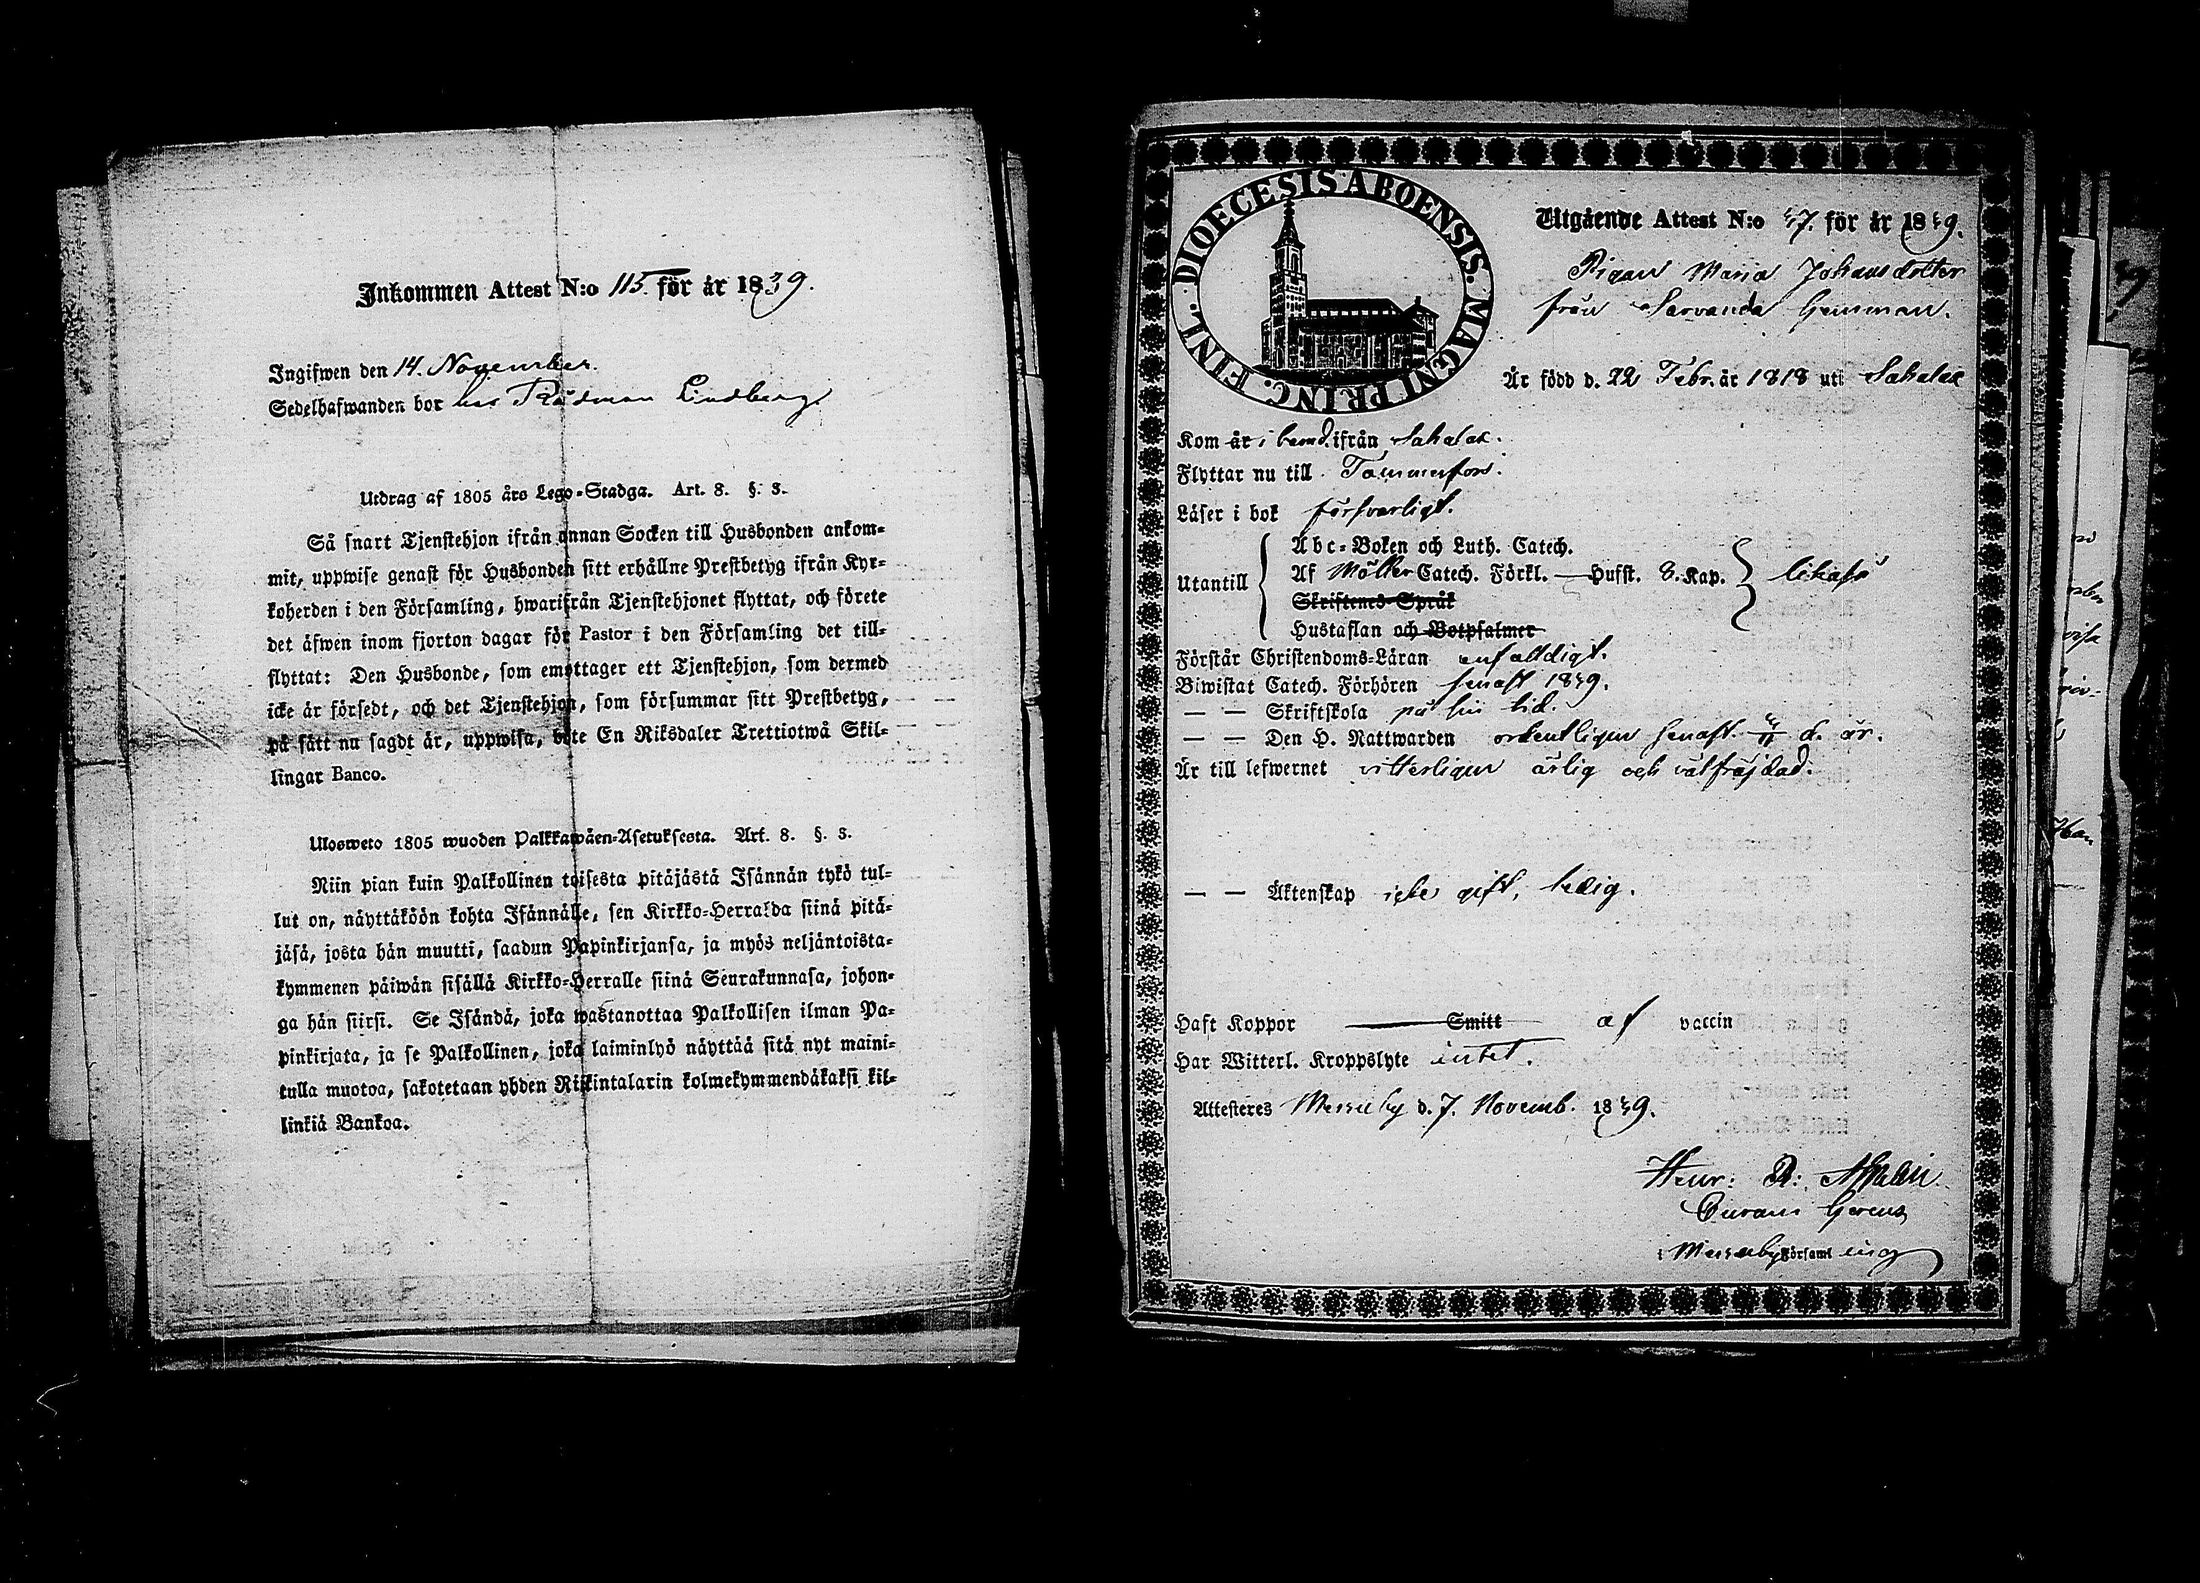 Inkommen Attest N:o 115. för år 1839.
Ingifwen den 14. November.
Sedelhafwanden bor hos Rådman Lindberg
Utdrag af 1805 års Lego-Stadga. Art. 8. §. 3.
Så snart Tjenstehjon ifrån annan Socken till Husbonden ankom-
mit, uppwise genast för Husbonden sitt erhållne Prestbetyg ifrån Kyr-
koherden i den Församling, hwarifrån Tjenstehjonet flyttat, och förete
det äfwen inom fjorton dagar för Pastor i den Församling det till-
flyttat: Den Husbonde, som emottager ett Tjenstehjon, som dermed
icke är försedt, och det Tjenstehjon, som försummar sitt Prestbetyg,
på sätt nu sagdt är, uppwisa, böte En Riksdaler Trettiotwå Skil-
lingar Banco.
Ulosweto 1805 wuoden Palkkawäen-Asetuksesta. Art. 8. §. 3.
Niin pian kuin Palkollinen toisesta pitäjästä Isännän tykö tul-
lut on, näyttäköön kohta Isännälle, sen Kirkko-Herralda siinä pitä-
jäsä, josta hän muutti, saadun Papinkirjansa, ja myös neljäntoista-
kymmenen päiwän sisällä Kirkko-Herralle siinä Seurakunnasa, johon-
ga hän siirsi. Se Isändä, joka wastanottaa Palkollisen ilman Pa-
pinkirjata, ja se Palkollinen, joka laiminlyö näyttää sitä nyt maini-
tulla muotoa, sakotetaan yhden Riikintalarin kolmekymmendäkaksi kil-
linkiä Bankoa.
DIOECESIS ABOENSIS. MAGNI PRINC. FINL.
Utgående Attest N:o 37. för år 1839.
Pigan Maria Johansdotter
från Sarvanda hemman.
Är född d. 22 Febr. år 1818 uti Sahalax
Kom år i barnd. ifrån Sahalax.
Flyttar nu till Tammerfors.
Läser i bok försvarligt.
Abc-Boken och Luth. Catech.
Utantill Af Möller Catech. Förkl. — Hufst. 8. Kap. likaså
Skriftenes Språk
Hustaflan och Botpsalmer
Förstår Christendoms-Läran enfaldigt.
Biwistat Catech. Förhören senast 1839.
— — Skriftskola på sin tid.
— — Den H. Nattwarden ordentligen senast d. år.
Är till lefwernet vitterligen ärlig och välfräjdad.
— — Äktenskap icke gift, ledig.
Haft Koppor — Smitt af vaccin
Har Witterl. Kroppslyte intet.
Attesteres Messuby d. 7. Novemb. 1839.
Henr: R:
Curam Gerens
i Messuby församling